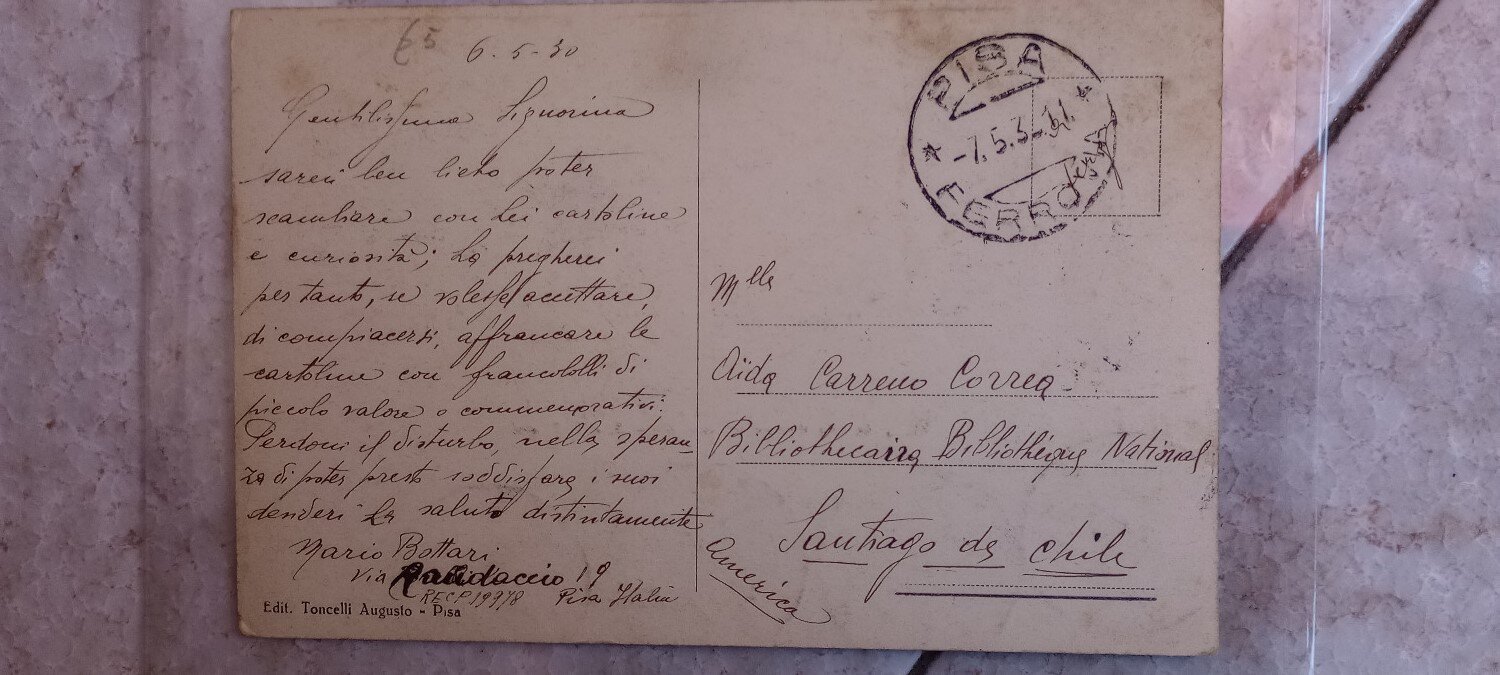 65
6-5-30
Gentilissima Signorina
sarei ben lieto poter
scambiare con Lei cartoline
e curiosità; La pregherei
pertanto, se volesse accettare,
di compiacersi, affrancare le
cartoline con francobolli di
piccolo valore o commemorativi.
Perdoni il disturbo, nella speran-
za di poter presto soddisfare i suoi
desideri La saluto distintamente
Mario Bottari
via 19
RECP.19978 Pisa Italia
Edit. Toncelli Augusto - Pisa
PISA
-7.5.3
FERROVIA
Mlle
Aïda Carreno Correa
Bibliothecaira Bibliothéque National
Santiago de Chile
America